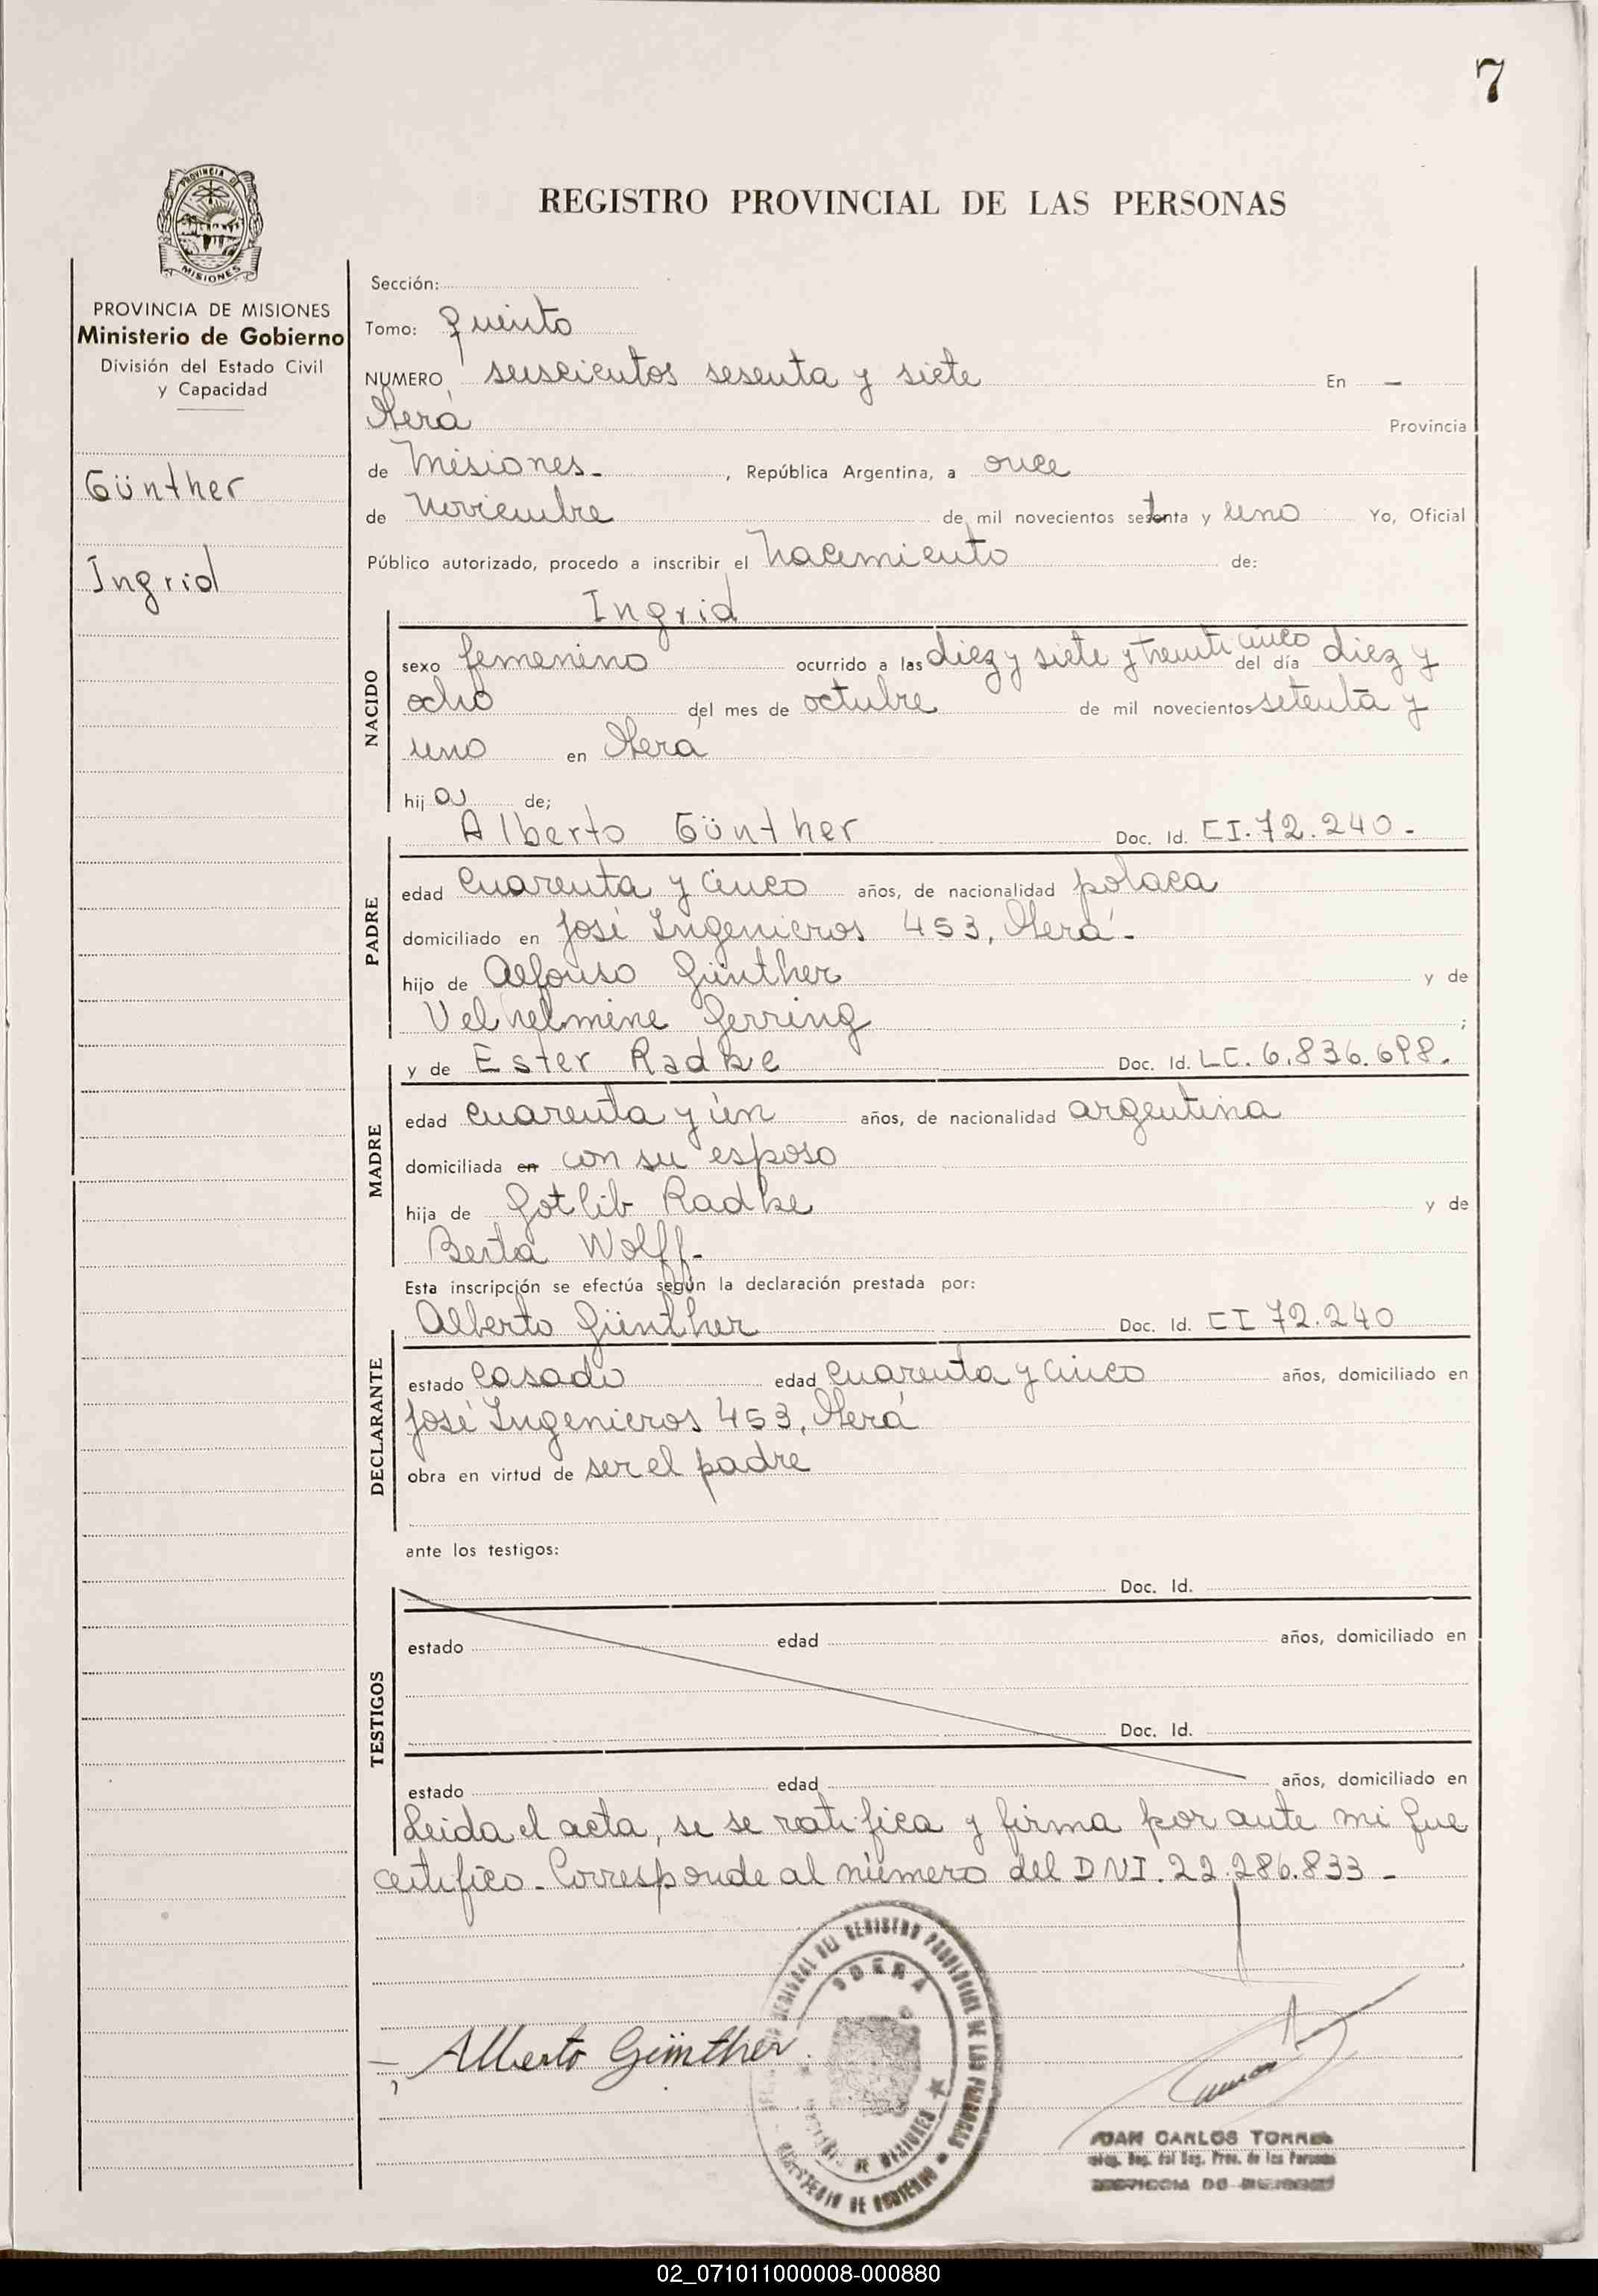 7
PROVINCIA DE
MISIONES
REGISTRO PROVINCIAL DE LAS PERSONAS
PROVINCIA DE MISIONES
Ministerio de Gobierno
División del Estado Civil
y Capacidad
Günther
Ingrid
Sección:
Tomo: Quinto
NUMERO seiscientos sesenta y siete En —
Oberá Provincia
de Misiones- , República Argentina, a once
de Noviembre de mil novecientos setenta y uno Yo, Oficial
Público autorizado, procedo a inscribir el Nacimiento de:
Ingrid
NACIDO
sexo femenino ocurrido a las diez y siete y treinti cinco del día diez y
ocho del mes de octubre de mil novecientos setenta y
uno en Oberá
hij a de;
PADRE
Alberto Günther Doc. Id. CI.72.240-
edad cuarenta y cinco años, de nacionalidad polaca
domiciliado en José Ingenieros 453, Oberá-
hijo de Alfonso Günther y de
Velhelmine Gerring ;
MADRE
y de Ester Radke Doc. Id. LC. 6.836.698.
edad cuarenta y un años, de nacionalidad argentina
domiciliada en con su esposo
hija de Gotlib Radke y de
Berta Wolff-
Esta inscripción se efectúa según la declaración prestada por:
DECLARANTE
Alberto Günther Doc. Id. CI 72.240
estado casado edad cuarenta y cinco años, domiciliado en
José Ingenieros 453, Oberá
obra en virtud de ser el padre
ante los testigos:
TESTIGOS
Doc. Id.
estado edad años, domiciliado en
Doc. Id.
estado edad años, domiciliado en
Leida el acta, se se ratifica y firma por ante mi que
certifico- Corresponde al número del DNI. 22.286.833-
DEL REGISTRO PROVINCIAL DE LAS PERSONAS
OBERA
DE MISIONES
MINISTERIO DE GOBIERNO
Alberto Günther
JUAN CARLOS TORRES
Reg. Prov. de las Personas
02_071011000008-000880